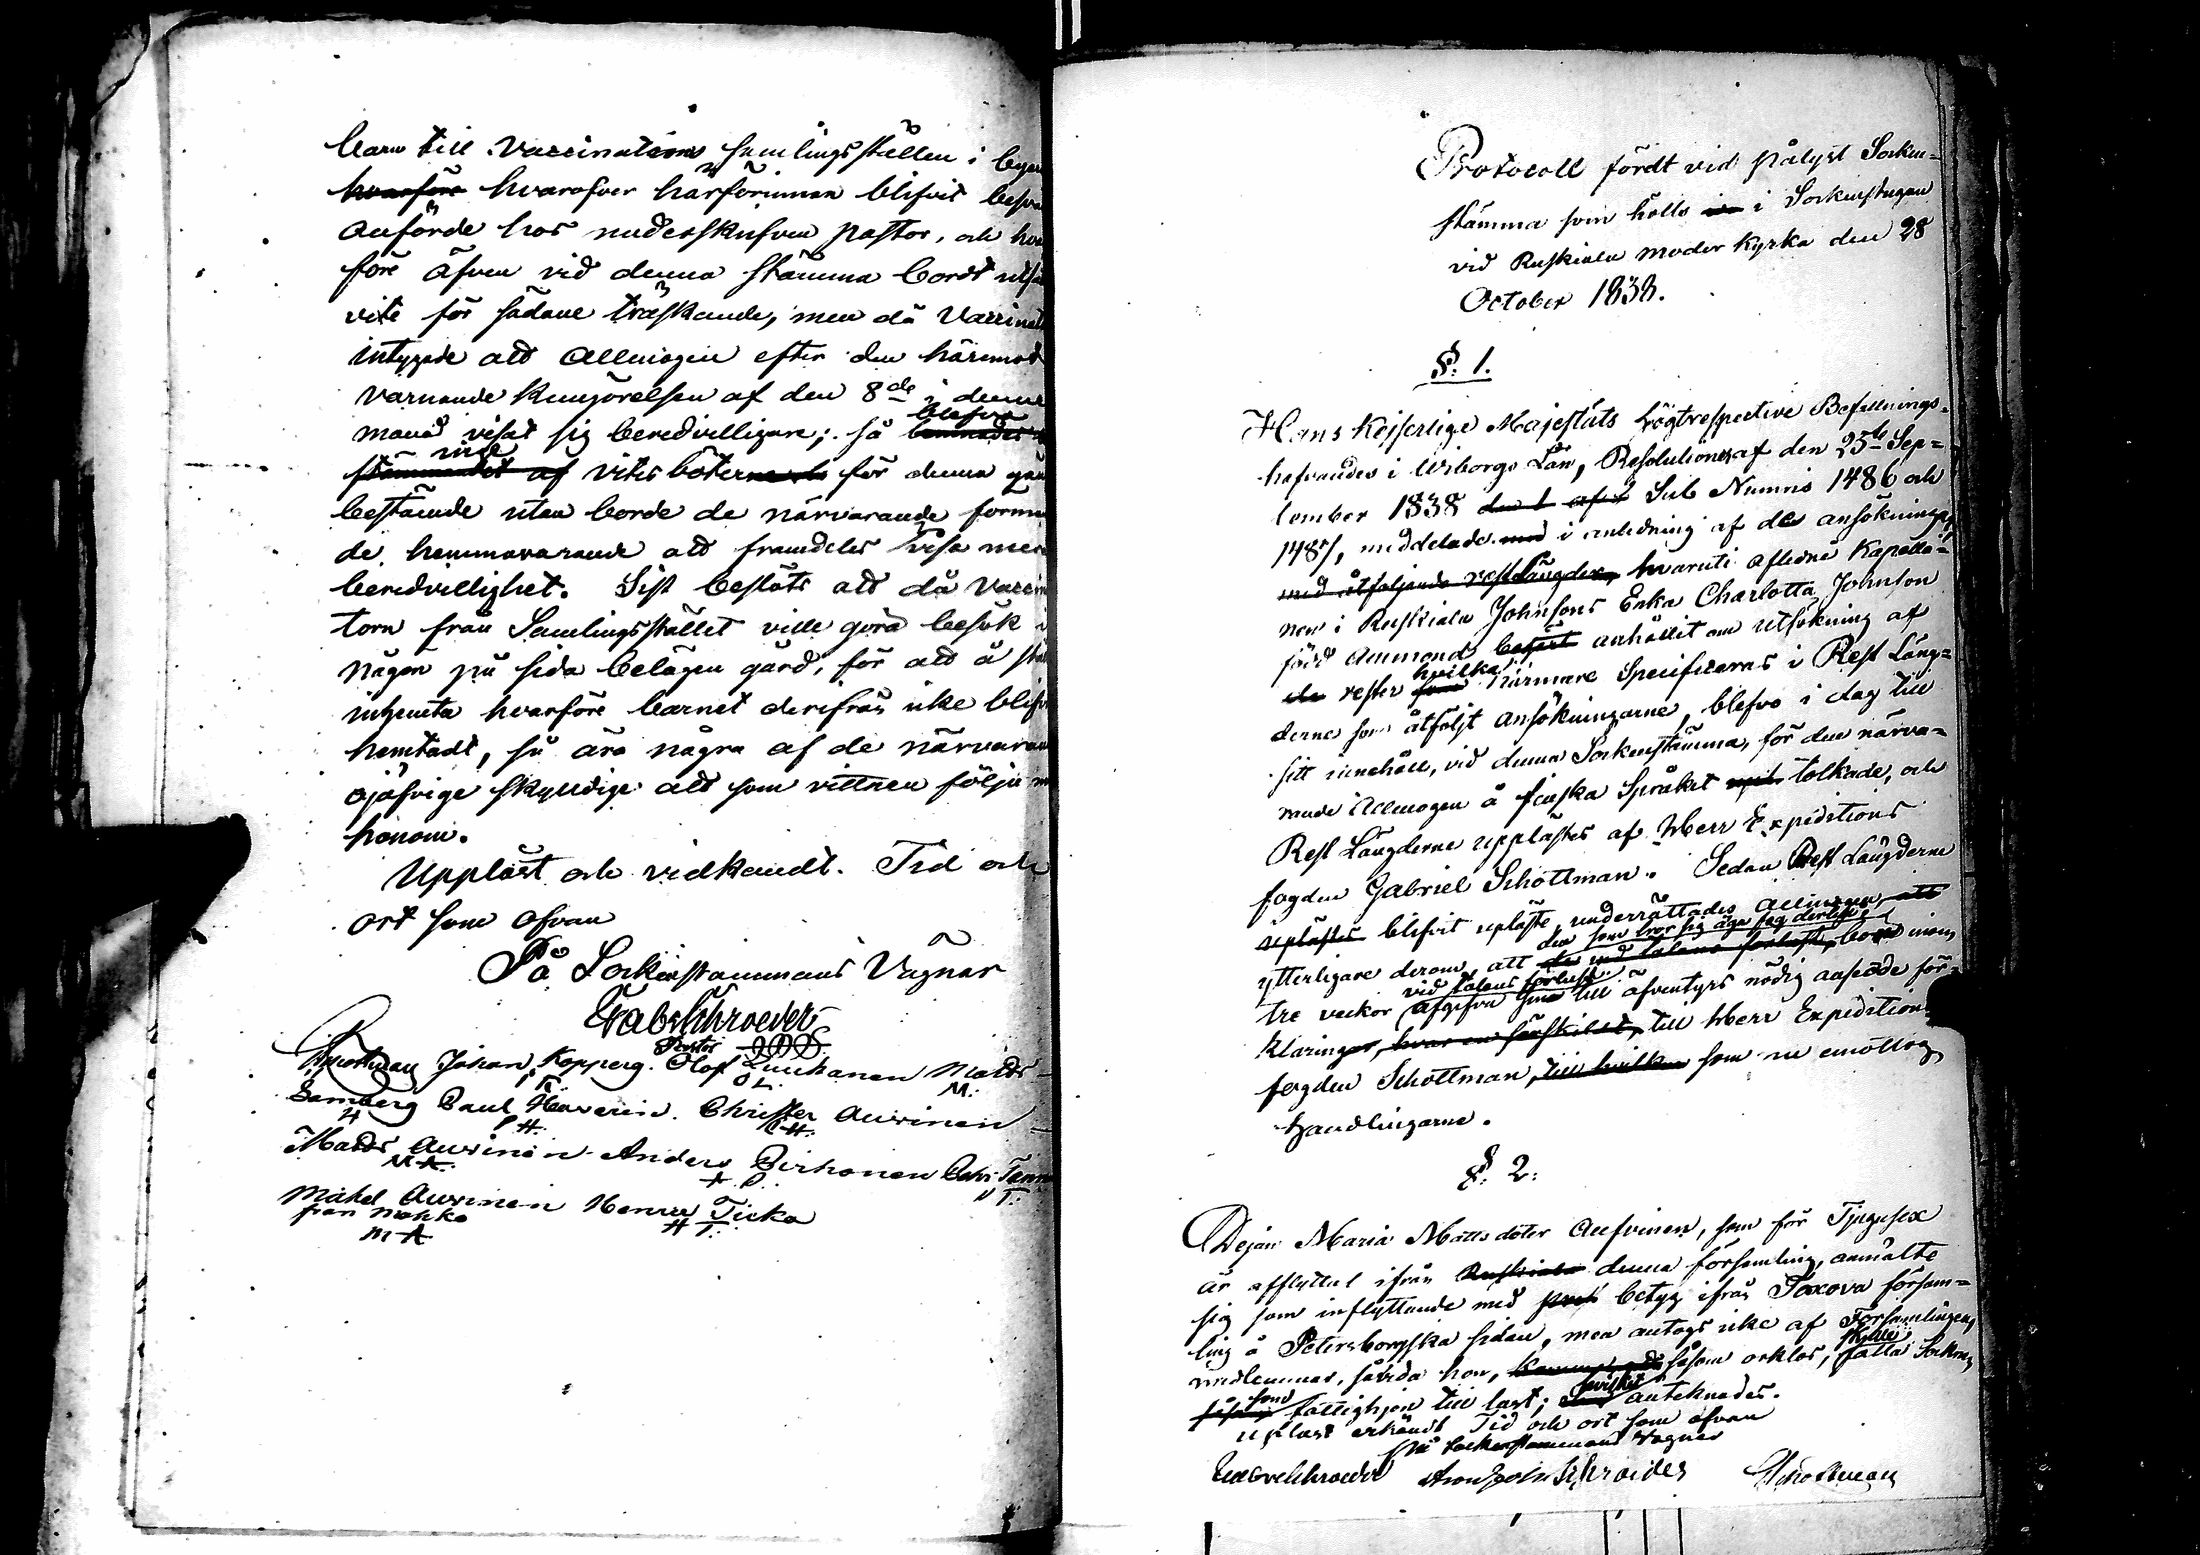 barn till Vaccinations samlingsställen i
hvarföre hvaröfver härförinnan blifvit
anförde hos underskrifven pastor, och
före äfven vid denna stämma bordt
vite för sådane träskande, men då
intygade att Allmogen efter den häremot
varnande kungörelsen af den 8de i denne
månad visat sig beredvilligare; så blefvo
inge vites böter för denna
bestämde utan borde de närvarande
de hemmavarande att framdeles visa mera
beredvillighet. Sist beslöts att då
torn från Samlingsstället ville göra besök
någon på sida belägen gård, för att å
inhemta hvarföre barnet derifrån icke
hemtadt, så äro några af de
ojäfvige skyldige att som vittnen följa
honom.
Uppläst och vidkändt. Tid och
ort som ofvan
På Sockenstämmans Vägnar
Gab Schroeder
Pastor
Schottman Johan Kopperg. Olof Luukanen Matts
K. O L. M.
Samberg Paul Haverin. Christer Auvinen
H P H. C H.
Matts Auvinen Anders Pirhonen
M A. A. P. T.
Mickel Auvinen Henric Ticka
från
M A H T.
Protocoll fördt vid pålyst Socken=
stämma som hölls i Sockenstugan
vid Ruskiala moder kyrka den 28
October 1838.
§. 1.
Hans Kejserlige Majestäts högtrespective Befallnings=
hafvandes i Wiborgs Län, Resolutioner af den 25te Sep=
tember 1838 den 1 af Sub Numris 1486 och
1487, meddelade med i anledning af de ansökningar,
med åtföljande restlängder, hvaruti aflidne Kapella=
nen i Ruskiala Johnsons Enka Charlotta Johnson
född Ammond anhållit om utsökning af
de rester som hvilka närmare specificeras i Rest Läng=
derne som åtföljt ansökningarne, blefvo i dag till
sitt innehåll, vid denna Sockenstämma, för den närva=
rande Allmogen å finska Språket tolkade, och
Rest Längderne upplästes af Herr Expeditions
fogden Gabriel Schottman. Sedan Rest Längderne
upläste blifvit upläste, underrättades Allmogen, att
den som tror sig äga fog dertill
ytterligare derom, att de vid talans förlust, borde inom
vid talans förlust
tre veckor afgifva sine till äfventyrs nödig ansedde för=
klaringar, hvar en särskildt, till Herr Expeditions
fogden Schottman, till hvilken som nu emottog
handlingarne.
§. 2:
Pigan Maria Matts doter Aufvinen, som för Tjugusex
år afflyttat ifrån Ruskiala denna församling, anmälte
sig som inflyttande med prest betyg ifrån Toxova försam=
ling å Petersborgska sidan, men antogs icke af Församlingens
skulle
medlemmar, såvida hon, såsom orklös, falla Socknen
som hvilket
fattighjon till last; antecknades.
Uplast erkändt Tid och ort som ofvan
på Sockenstämmans Vägnar
Gabr Schroeder Schroeder Schottman